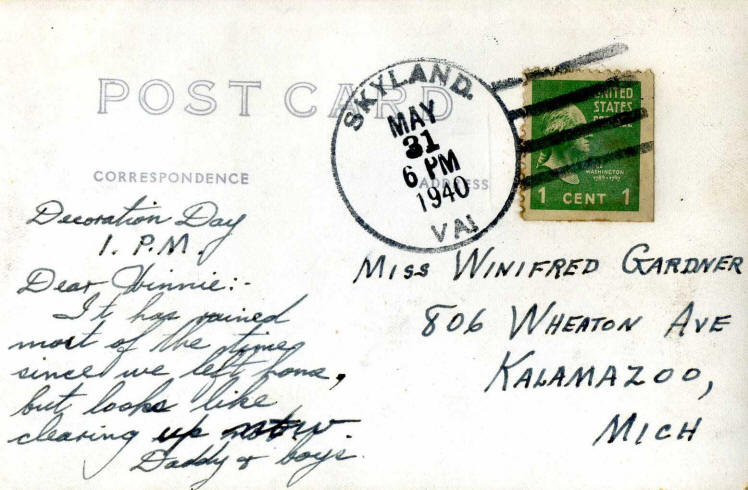 POST CARD
SKYLAND.
MAY
31
6 PM
1940
VA
UNITED
STATES
POSTAGE
WASHINGTON
1789-1797
1 CENT 1
CORRESPONDENCE
ADDRESS
Decoration Day
1. P.M.
Dear Winnie:-
It has rained
most of the time
since we left home,
but looks like
clearing up now.
Daddy & boys.
MISS WINIFRED GARDNER
806 WHEATON AVE
KALAMAZOO,
MICH